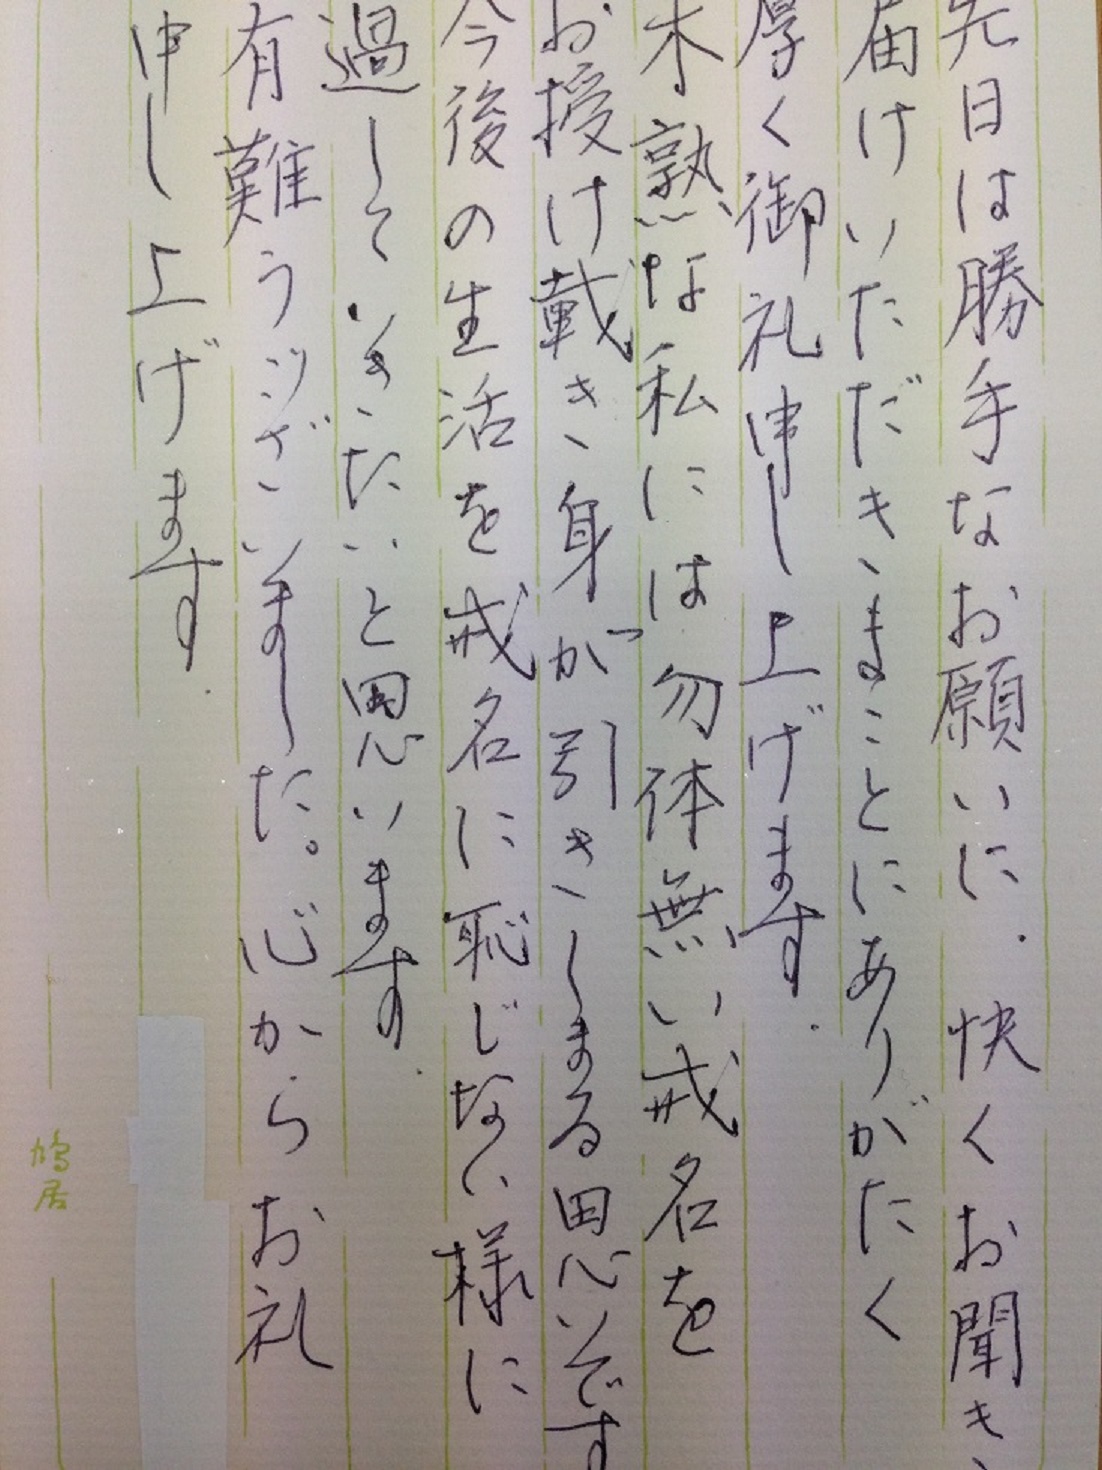 先日は勝手なお願いに、快くお聞き
届けいただきまことにありがたく
厚く御礼申し上げます。
未熟な私には勿体無い戒名を
お授け載き身が引きしまる思いです
今後の生活を戒名に恥じない様に
過していきたいと思います。
有難うございました。心からお礼
申し上げます。
鳩居